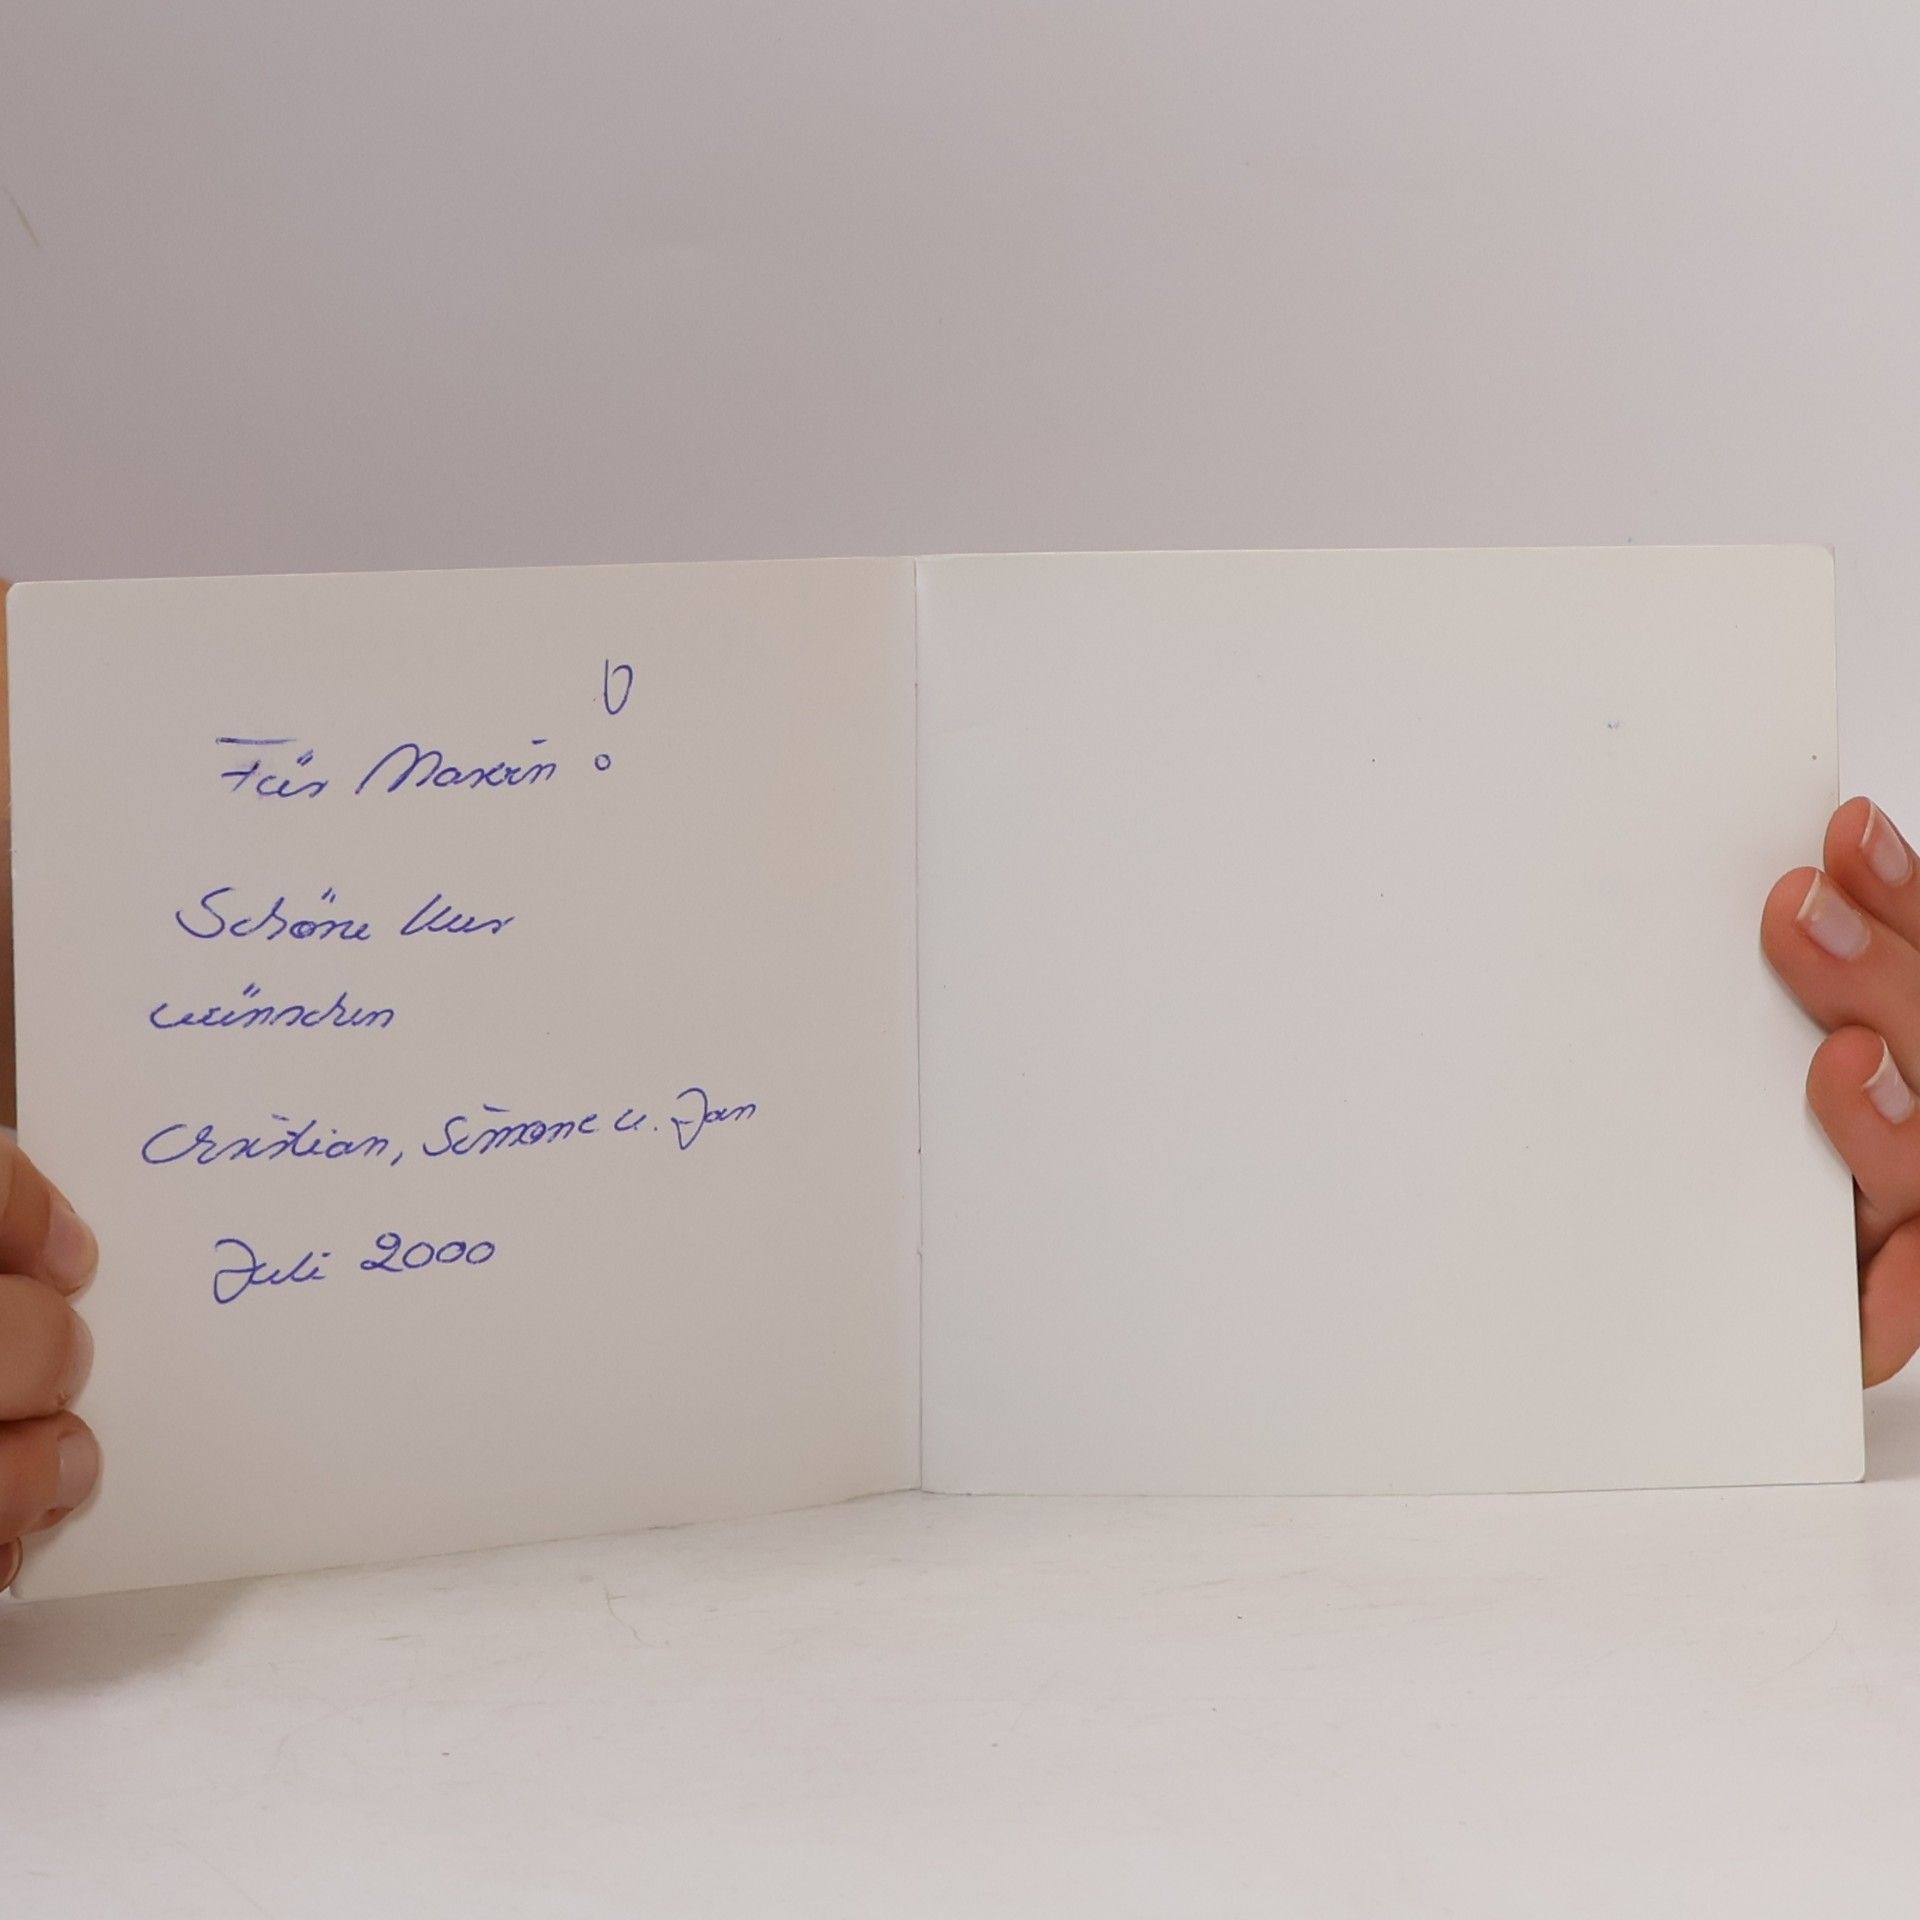 Für Maxin!
Schöne Kur
wünschen
Christian, Simone u. Jan
Juli 2000